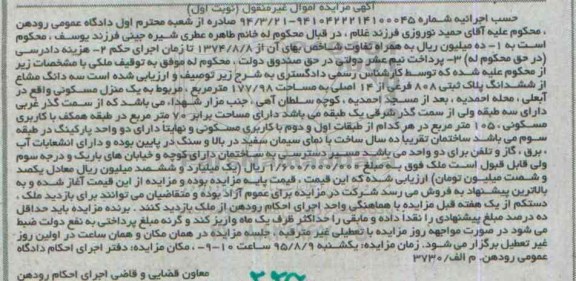 آگهی مزایده اموال غیرمنقول (نوبت اول)
حسب اجرائیه شماره ۹۴۱۰۴۲۲۲۱۴۱۰۰۰۴۵-۹۴/۳/۲۱ صادره از شعبه محترم اول دادگاه عمومی رودهن
، محکوم علیه آقای حمید نوروزی فرزند غلام ، در قبال محکوم له خانم طاهره عطری شیره جینی فرزند یوسف ، محکوم
است به ۱- ده میلیون ریال به همراه تفاوت شاخص بهای آن از ۱۳۷۴/۸/۸ تا زمان اجرای حکم ۲- هزینه دادرسی
(در حق محکوم له) ۳- پرداخت نیم عشر دولتی در حق صندوق دولت . محکوم له موفق به توقیف ملکی با مشخصات زیر
از محکوم علیه شده که توسط کارشناس رسمی دادگستری به شرح زیر توصیف و ارزیابی شده است سه دانگ مشاع
از ششدانگ پلاک ثبتی ۸۰۸ فرعی از ۱۴ اصلی به مساحت ۱۷۷/۹۸ مترمربع ، مربوط به یک منزل مسکونی واقع در
آبعلی ، محله احمدیه ، بعد از مسجد احمدیه ، کوچه سلطان آهی ، جنب مزار شهدا، می باشد که از سمت گذر غربی
دارای سه طبقه ولی از سمت گذر شرقی یک طبقه می باشد دارای مساحت برابر ۷۰ متر مربع در طبقه همکف با کاربری
مسکونی ، ۱۰۵ متر مربع در هر کدام از طبقات اول و دوم با کاربری مسکونی و نهایتاً دارای دو واحد پارکینگ در طبقه
سوم می باشد ساختمان تقریباً ده سال ساخت با نمای سیمان سفید در بالا و سنگ در پایین بوده و دارای انشعابات آب
، برق ، گاز و تلفن برای دو واحد می باشد مسیر دسترسی به ساختمان دارای کوچه و خیابان های باریک و درجه سوم
ولی قابل قبول است ملک فوق به مبلغ ۱/۶۰۰/۰۰۰/۰۰۰ ریال (یک میلیارد و ششصد میلیون ریال معادل یکصد
و شصت میلیون تومان) ارزیابی شده که این قیمت ، قیمت پایه مزایده بوده و مزایده از این قیمت آغاز شده و به
بالاترین پیشنهاد به فروش می رسد شرکت در مزایده برای عموم آزاد بوده و متقاضیان می توانند برای بازدید ملک ،
دستکم از یک هفته قبل مزایده با هماهنگی واحد اجرای احکام رودهن از ملک بازدید کنند . برنده مزایده باید حداقل
ده درصد مبلغ پیشنهادی را نقداً داده و مابقی را حداکثر ظرف یک ماه واریز کند و گرنه مبلغ پرداختی به نفع دولت ضبط
می شود در صورت مواجهه روز مزایده با تعطیلی غیر مترقبه ، جلسه مزایده در همان مکان و همان ساعت در اولین روز
غیر تعطیل برگزار می شود. زمان مزایده: یکشنبه ۹۵/۸/۹ ساعت ۱۰-۹- ، مکان مزایده: دفتر اجرای احکام دادگاه
عمومی رودهن. م الف/۳۷۳۰
معاون قضایی و قاضی اجرای احکام رودهن